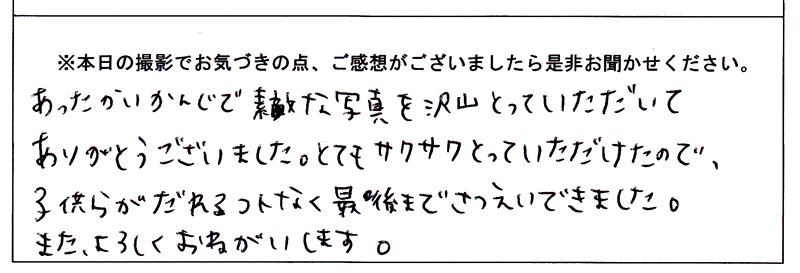 ※本日の撮影でお気づきの点、ご感想がございましたら是非お聞かせください。
あったかいかんじで素敵な写真を沢山とっていただいて
ありがとうございました。とてもサクサクとっていただけたので、
子供らがだれるコトなく最後までさつえいできました。
また、よろしくおねがいします。